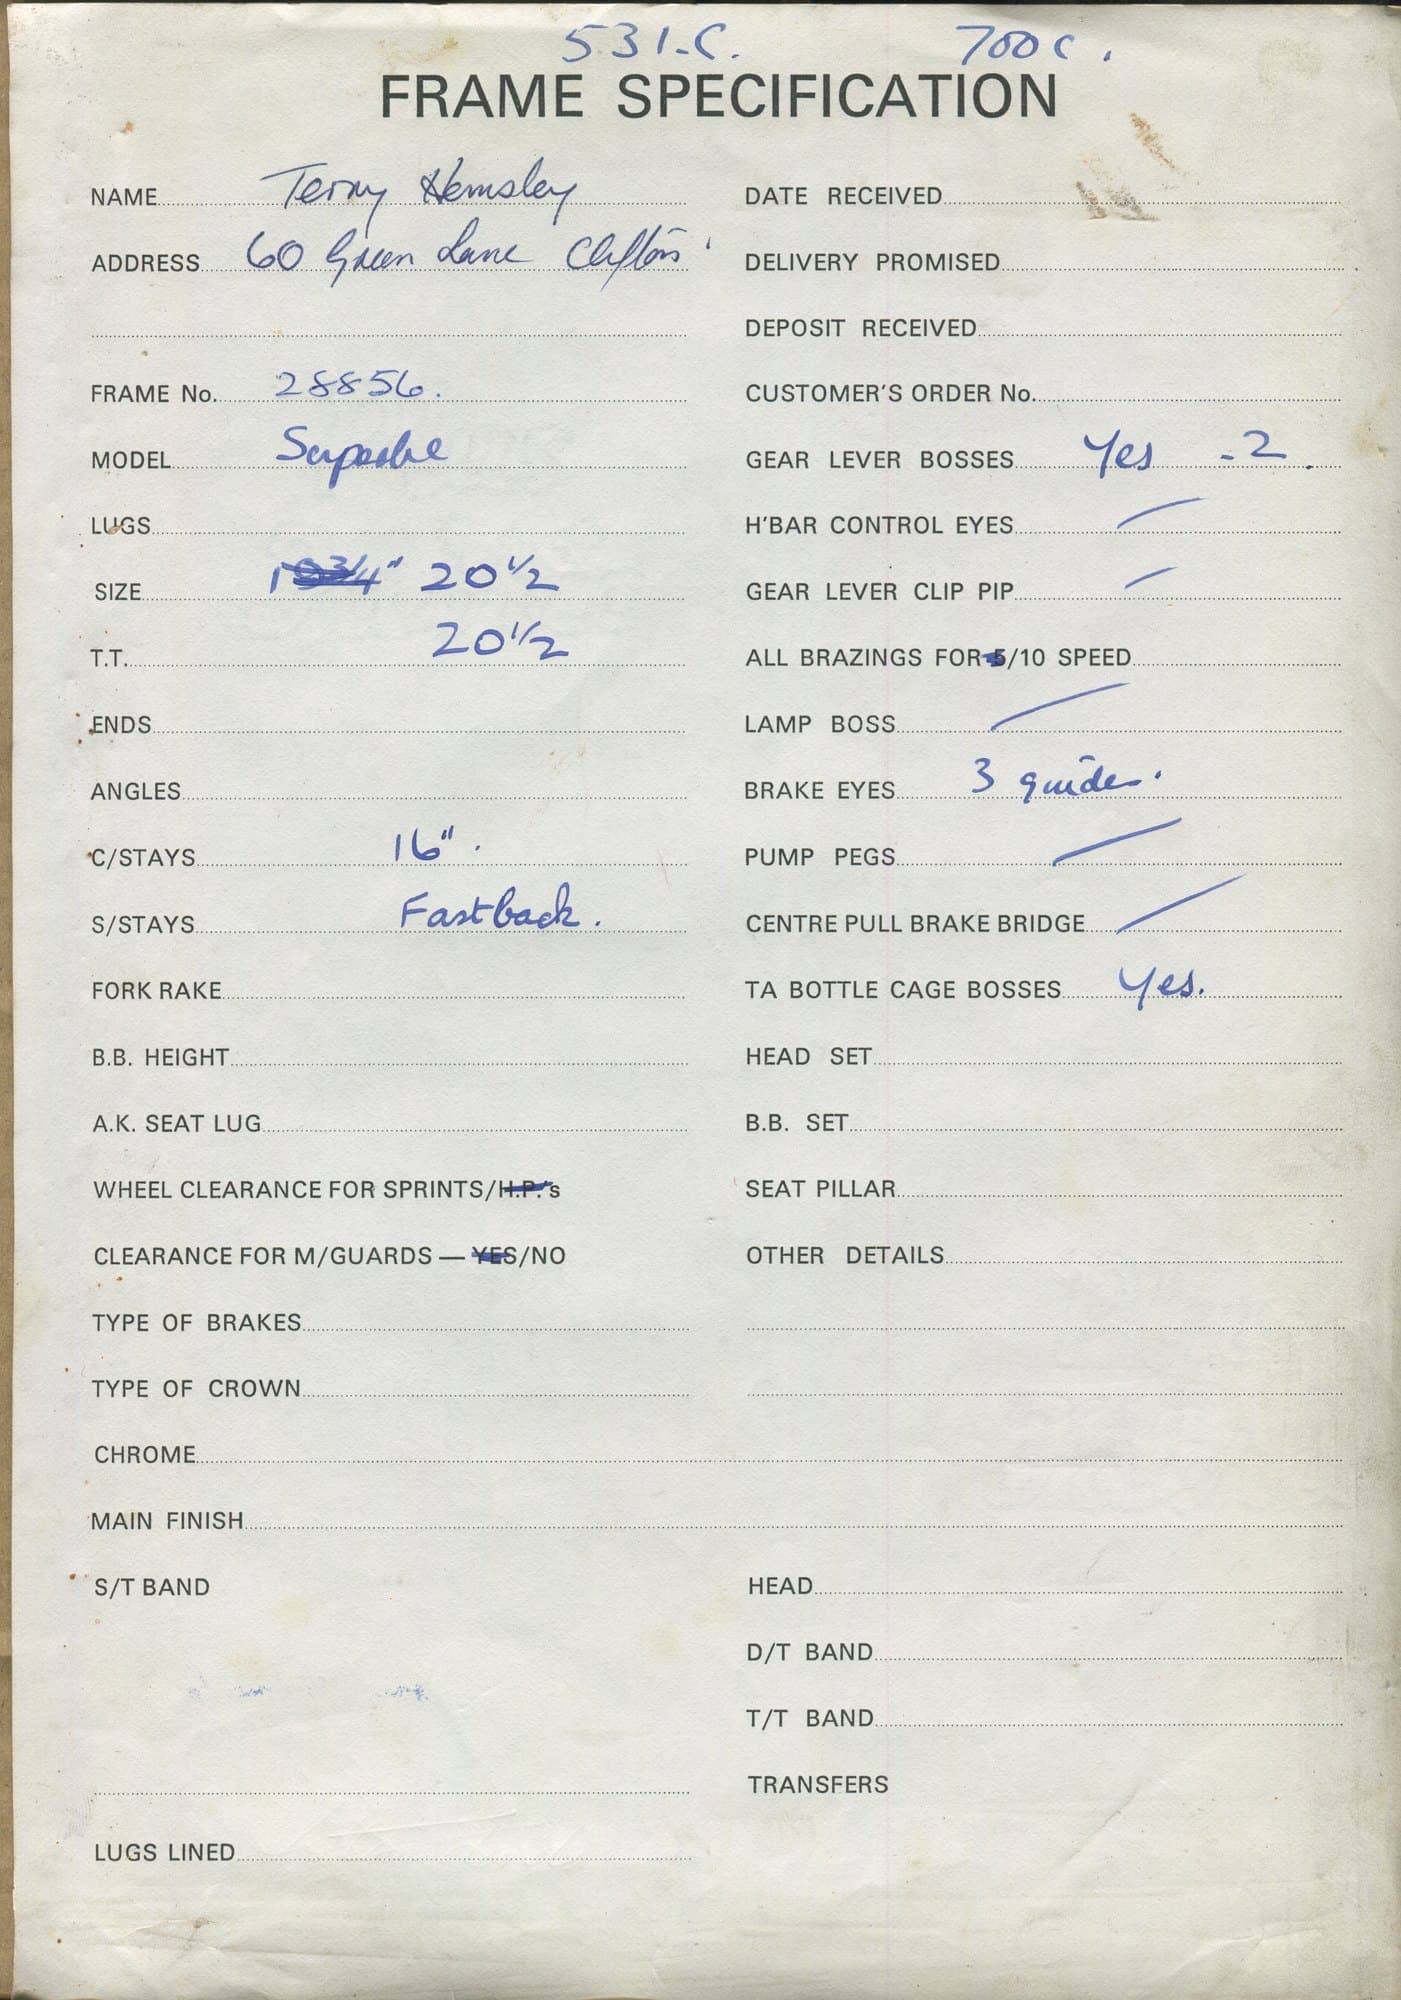 531-C. 700c.
FRAME SPECIFICATION
NAME Terry Hemsley
ADDRESS 60 Green Lane Clifton
FRAME No. 28856.
MODEL Superbe
LUGS
SIZE 19 3/4" 20 1/2
T.T. 20 1/2
ENDS
ANGLES
C/STAYS 16".
S/STAYS Fastback.
FORK RAKE
B.B. HEIGHT
A.K. SEAT LUG
WHEEL CLEARANCE FOR SPRINTS/H.P.'s
CLEARANCE FOR M/GUARDS — YES/NO
TYPE OF BRAKES
TYPE OF CROWN
CHROME
MAIN FINISH
S/T BAND
LUGS LINED
DATE RECEIVED
DELIVERY PROMISED
DEPOSIT RECEIVED
CUSTOMER'S ORDER No.
GEAR LEVER BOSSES Yes - 2.
H'BAR CONTROL EYES
GEAR LEVER CLIP PIP
ALL BRAZINGS FOR 5/10 SPEED
LAMP BOSS
BRAKE EYES 3 guides.
PUMP PEGS
CENTRE PULL BRAKE BRIDGE
TA BOTTLE CAGE BOSSES Yes.
HEAD SET
B.B. SET
SEAT PILLAR
OTHER DETAILS
HEAD
D/T BAND
T/T BAND
TRANSFERS